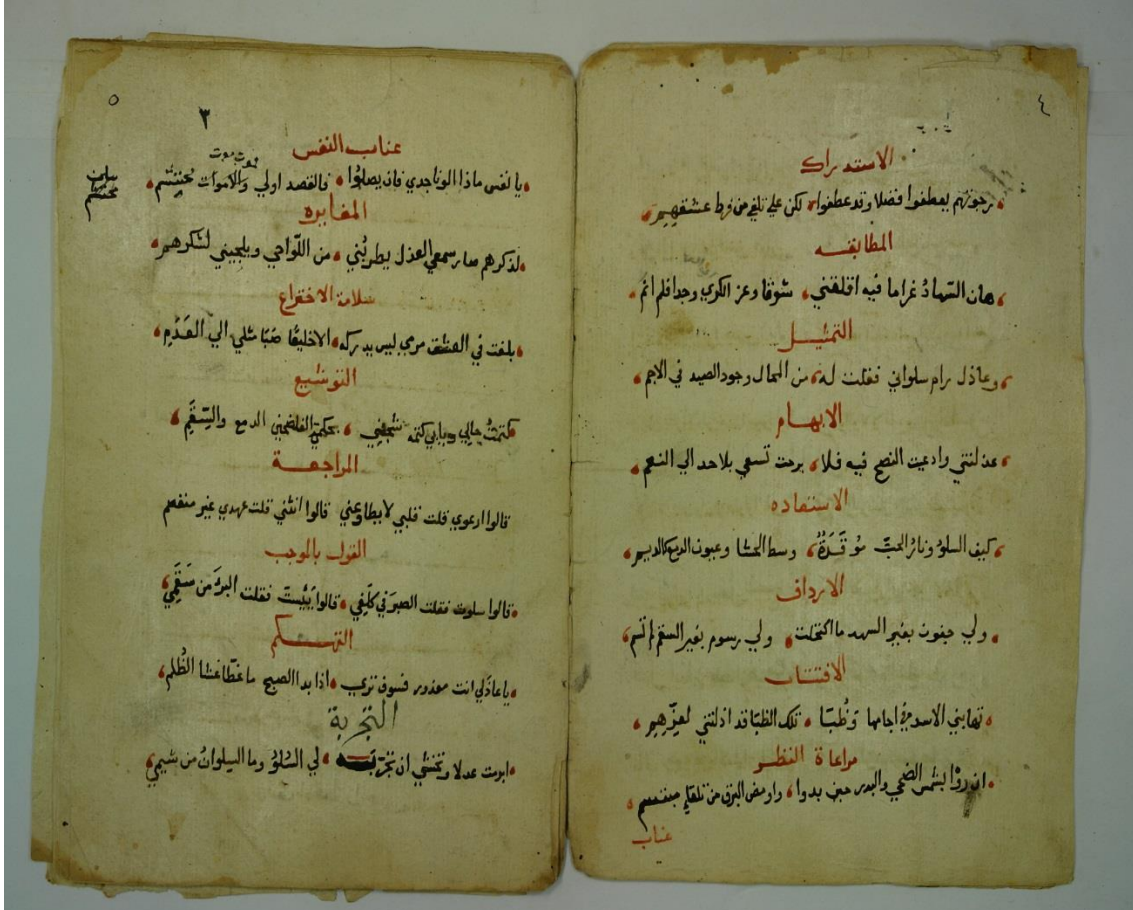 ٤
الاستدراك
رجوتهم يعطفوا فضلا وقد عطفوا لكن علي تلفي من فرط عشقهم
المطابقه
هان السهاد غراما فيه اقلقني شوقا وعز الكري وجدا فلم انم
التمثيل
وعاذل رام سلواني فقلت له من المحال وجود الصيد في الاجم
الابهام
عذلتني وادعيت النصح فيه فلا برحت تسعي بلا حد الي النعم
الاستعاده
كيف السلو ونار الحب موقدة وسط الحشا وعيون الدمع كالديم
الارداف
ولي جفون بغير السهد ما اكتحلت ولي رسوم بغير السقم لم تسم
الافتتان
تهابني الاسد في اجامها وظبا تلك الظبا قد اذلتني لعزهم
مراعاة النظر
ان روا بشمس الضحي والبدر حين بدوا واومض البرق من تلقاء مبتسم
عتاب
٥
٣
عتاب النفس
يا نفس ماذا الونا جدي فان يصلوا فالقصد اولي والاموات محتشم
موت موت
محتشم
المغايره
لذكرهم صار سمعي العذل يطربني من اللواحي ويلجيني لشكرهم
سلامة الاختراع
بلغت في العشق مرمي ليس يدركه الا خليعا صبا مثلي الي العدم
التوشيع
كتمت حالي ويابي كتمه شجني الدمع والسقم
المراجعة
قالوا ارعوي قلت قلبي لا يطاوعني قالوا انثني قلت عهدي غير منفصم
القول بالموجب
قالوا سلوت فقلت الصبر في كلفي قالوا يئست فقلت البرء من سقمي
التهكم
يا عاذلي انت معذور فسوف تري اذا بدا الصبح ما غطا غشا الظلم
التجربة
ابرت عدلا وتخشي ان تجر به لي السلو وما السلوان من شيمي